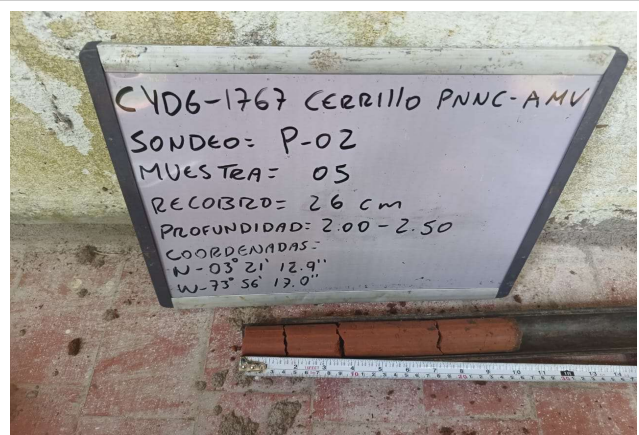 CYDG-1767 CERRIllO PNNC-AMV
SONDEO= P-02
MUESTRA= 05
RECOBRO= 26 cm
PROFUNDIDAD= 2.00-2.50
COORDENADAS=
N-03° 21' 12.9"
W-73° 56' 17.0"